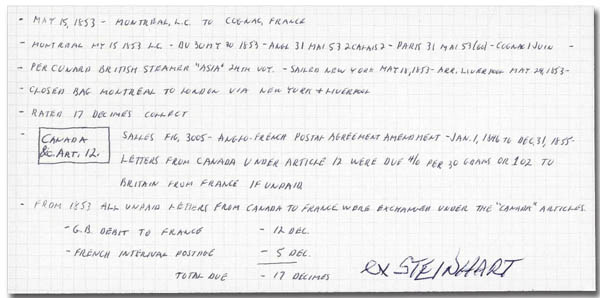 - MAY 15, 1853 - MONTREAL, L.C. TO COGNAC, FRANCE
- MONTREAL MY 15 1853 L.C. - BU 30 MY 30 1853 - ANGL. 31 MAI 53 2 CALAIS 2 - PARIS 31 MAI 53 (60) - COGNAC 1 JUIN -
- PER CUNARD BRITISH STEAMER "ASIA" 24TH VOY. - SAILED NEW YORK MAY 18, 1853 - ARR. LIVERPOOL MAY 29, 1853 -
- CLOSED BAG MONTREAL TO LONDON VIA NEW YORK + LIVERPOOL
- RATED 17 DECIMES COLLECT
- CANADA &c. ART. 12. SALLES FIG, 3005 - ANGLO-FRENCH POSTAL AGREEMENT AMENDMENT - JAN. 1, 1846 TO DEC, 31, 1855 -
LETTERS FROM CANADA UNDER ARTICLE 12 WERE DUE 4/- PER 30 GRAMS OR 1 OZ TO
BRITAIN FROM FRANCE IF UNPAID
- FROM 1853 ALL UNPAID LETTERS FROM CANADA TO FRANCE WERE EXCHANGED UNDER THE "CANADA" ARTICLES.
- G.B. DEBIT TO FRANCE - 12 DEC.
- FRENCH INTERNAL POSTAGE - 5 DEC.
TOTAL DUE - 17 DECIMES
ex STEINHART